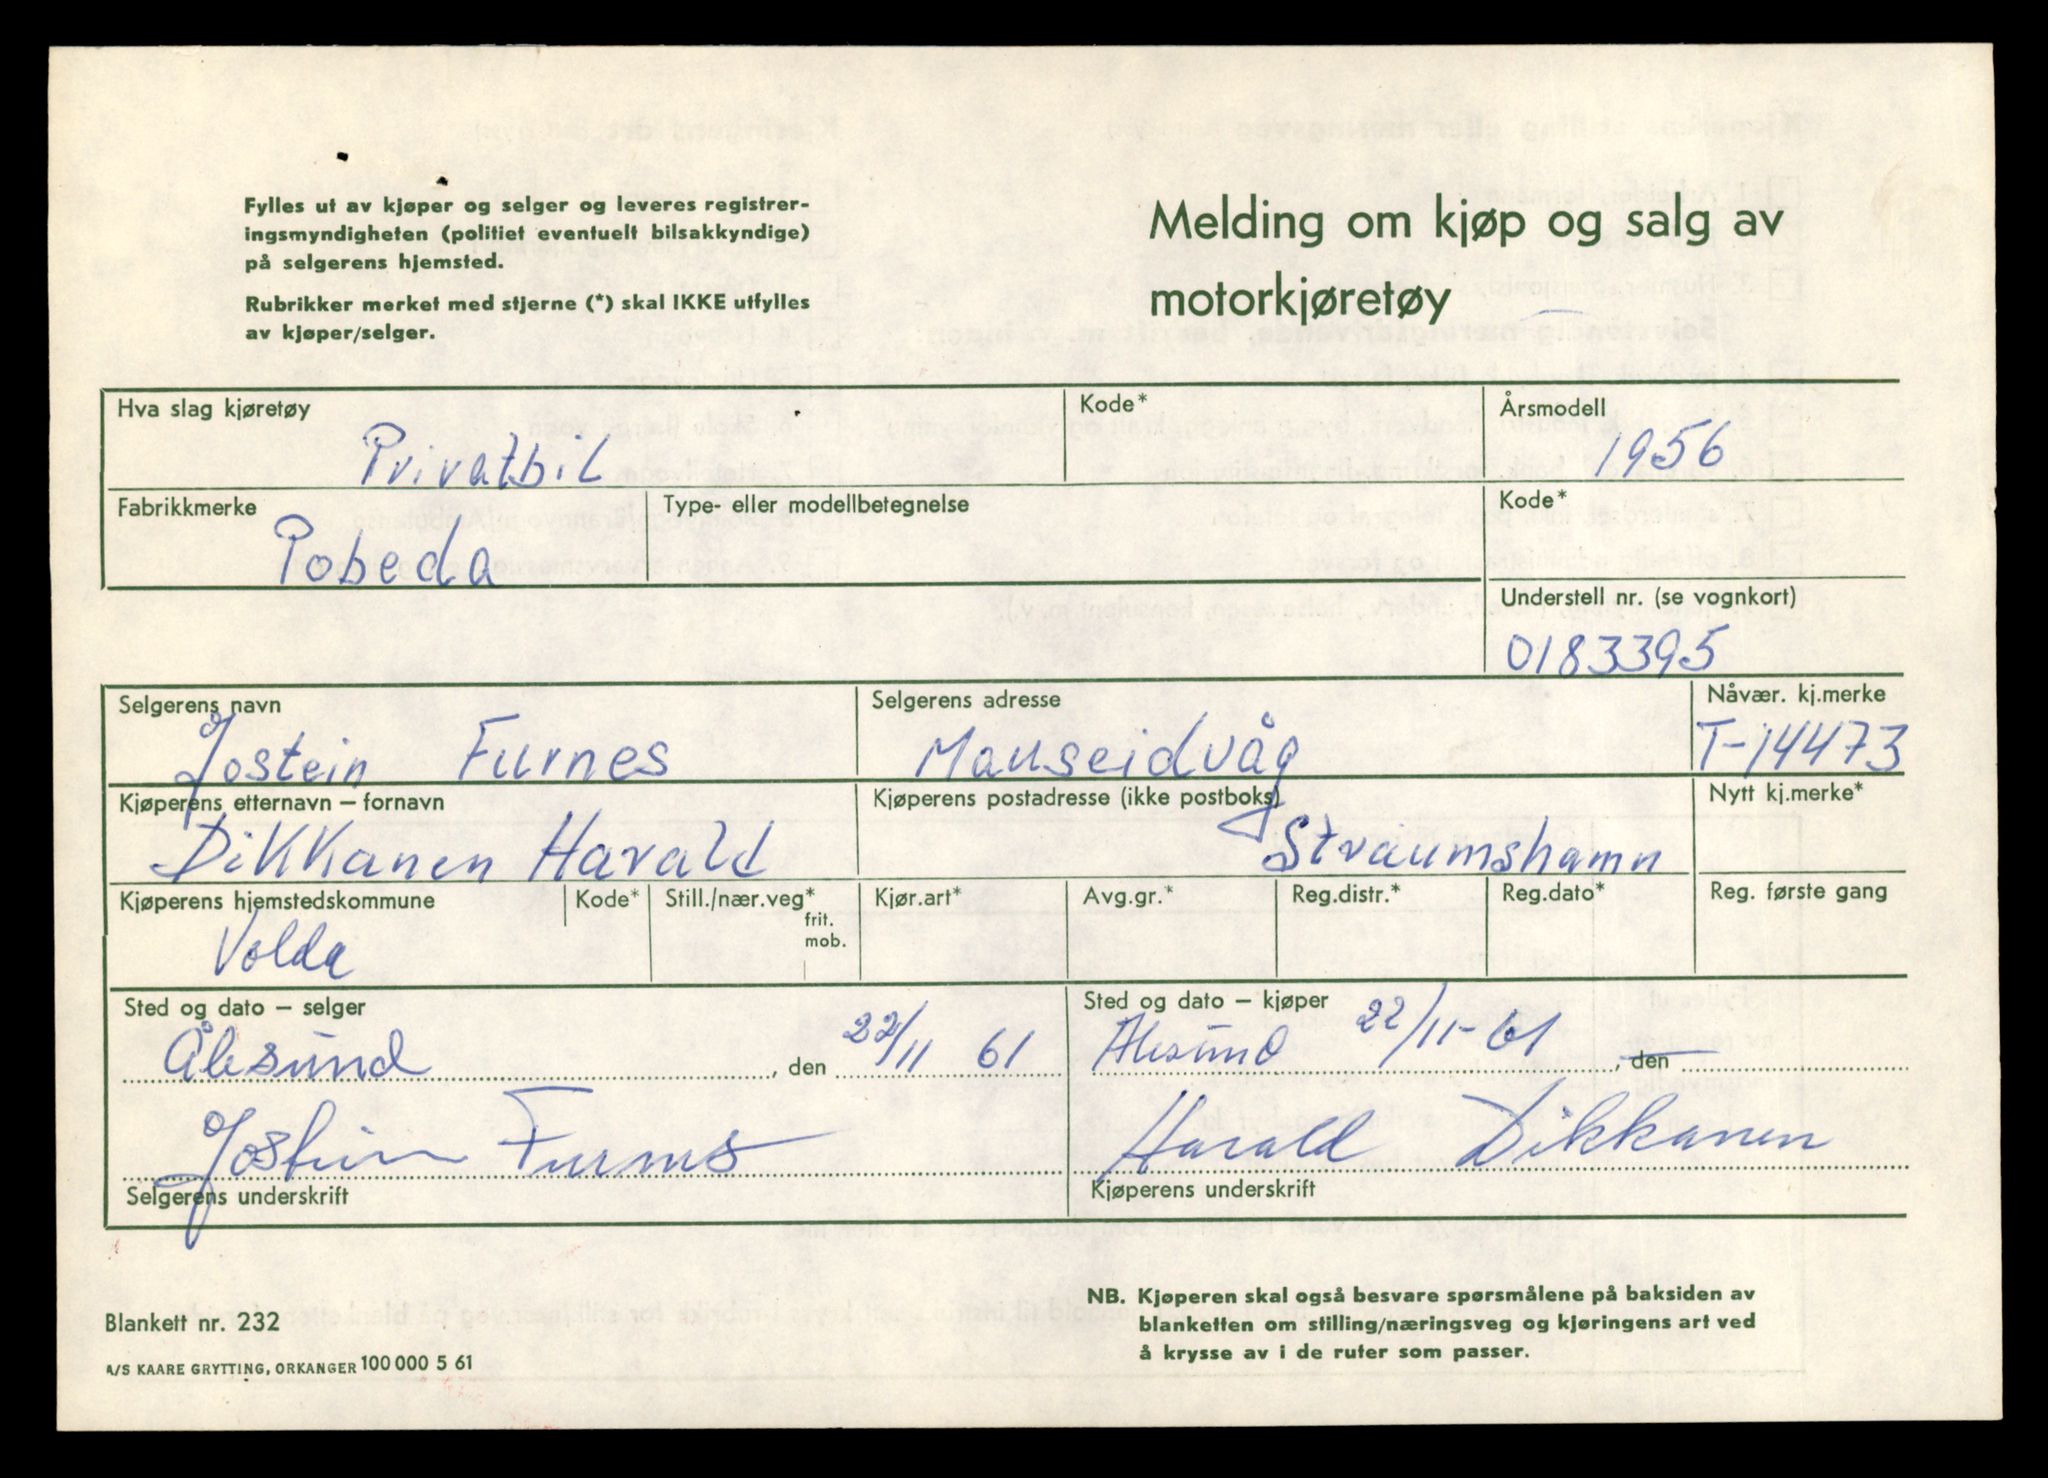 Fylles ut av kjøper og selger og leveres registrer-
ingsmyndigheten (politiet eventuelt bilsakkyndige)
på selgerens hjemsted.
Rubrikker merket med stjerne (*) skal IKKE utfylles
av kjøper/selger.
Melding om kjøp og salg av
motorkjøretøy
Hva slag kjøretøy
Privatbil
Kode*
Årsmodell
1956
Fabrikkmerke
Pobeda
Type- eller modellbetegnelse
Kode*
Understell nr. (se vognkort)
0183395
Selgerens navn
Jostein Furnes
Selgerens adresse
Mauseidvåg
Nåvær. kj.merke
T-14473
Kjøperens etternavn – fornavn
Dikkanen Harald
Kjøperens postadresse (ikke postboks)
Straumshamn
Nytt kj.merke*
Kjøperens hjemstedskommune
Volda
Kode*
Still./nær.veg*
frit.
mob.
Kjør.art*
Avg.gr.*
Reg.distr.*
Reg.dato*
Reg. første gang
Sted og dato – selger
Ålesund , den 22/11 61
Sted og dato – kjøper
Ålesund 22/11-61 , den
Jostein Furnes
Selgerens underskrift
Harald Dikkanen
Kjøperens underskrift
Blankett nr. 232
A/S KAARE GRYTTING, ORKANGER 100 000 5 61
NB. Kjøperen skal også besvare spørsmålene på baksiden av
blanketten om stilling/næringsveg og kjøringens art ved
å krysse av i de ruter som passer.